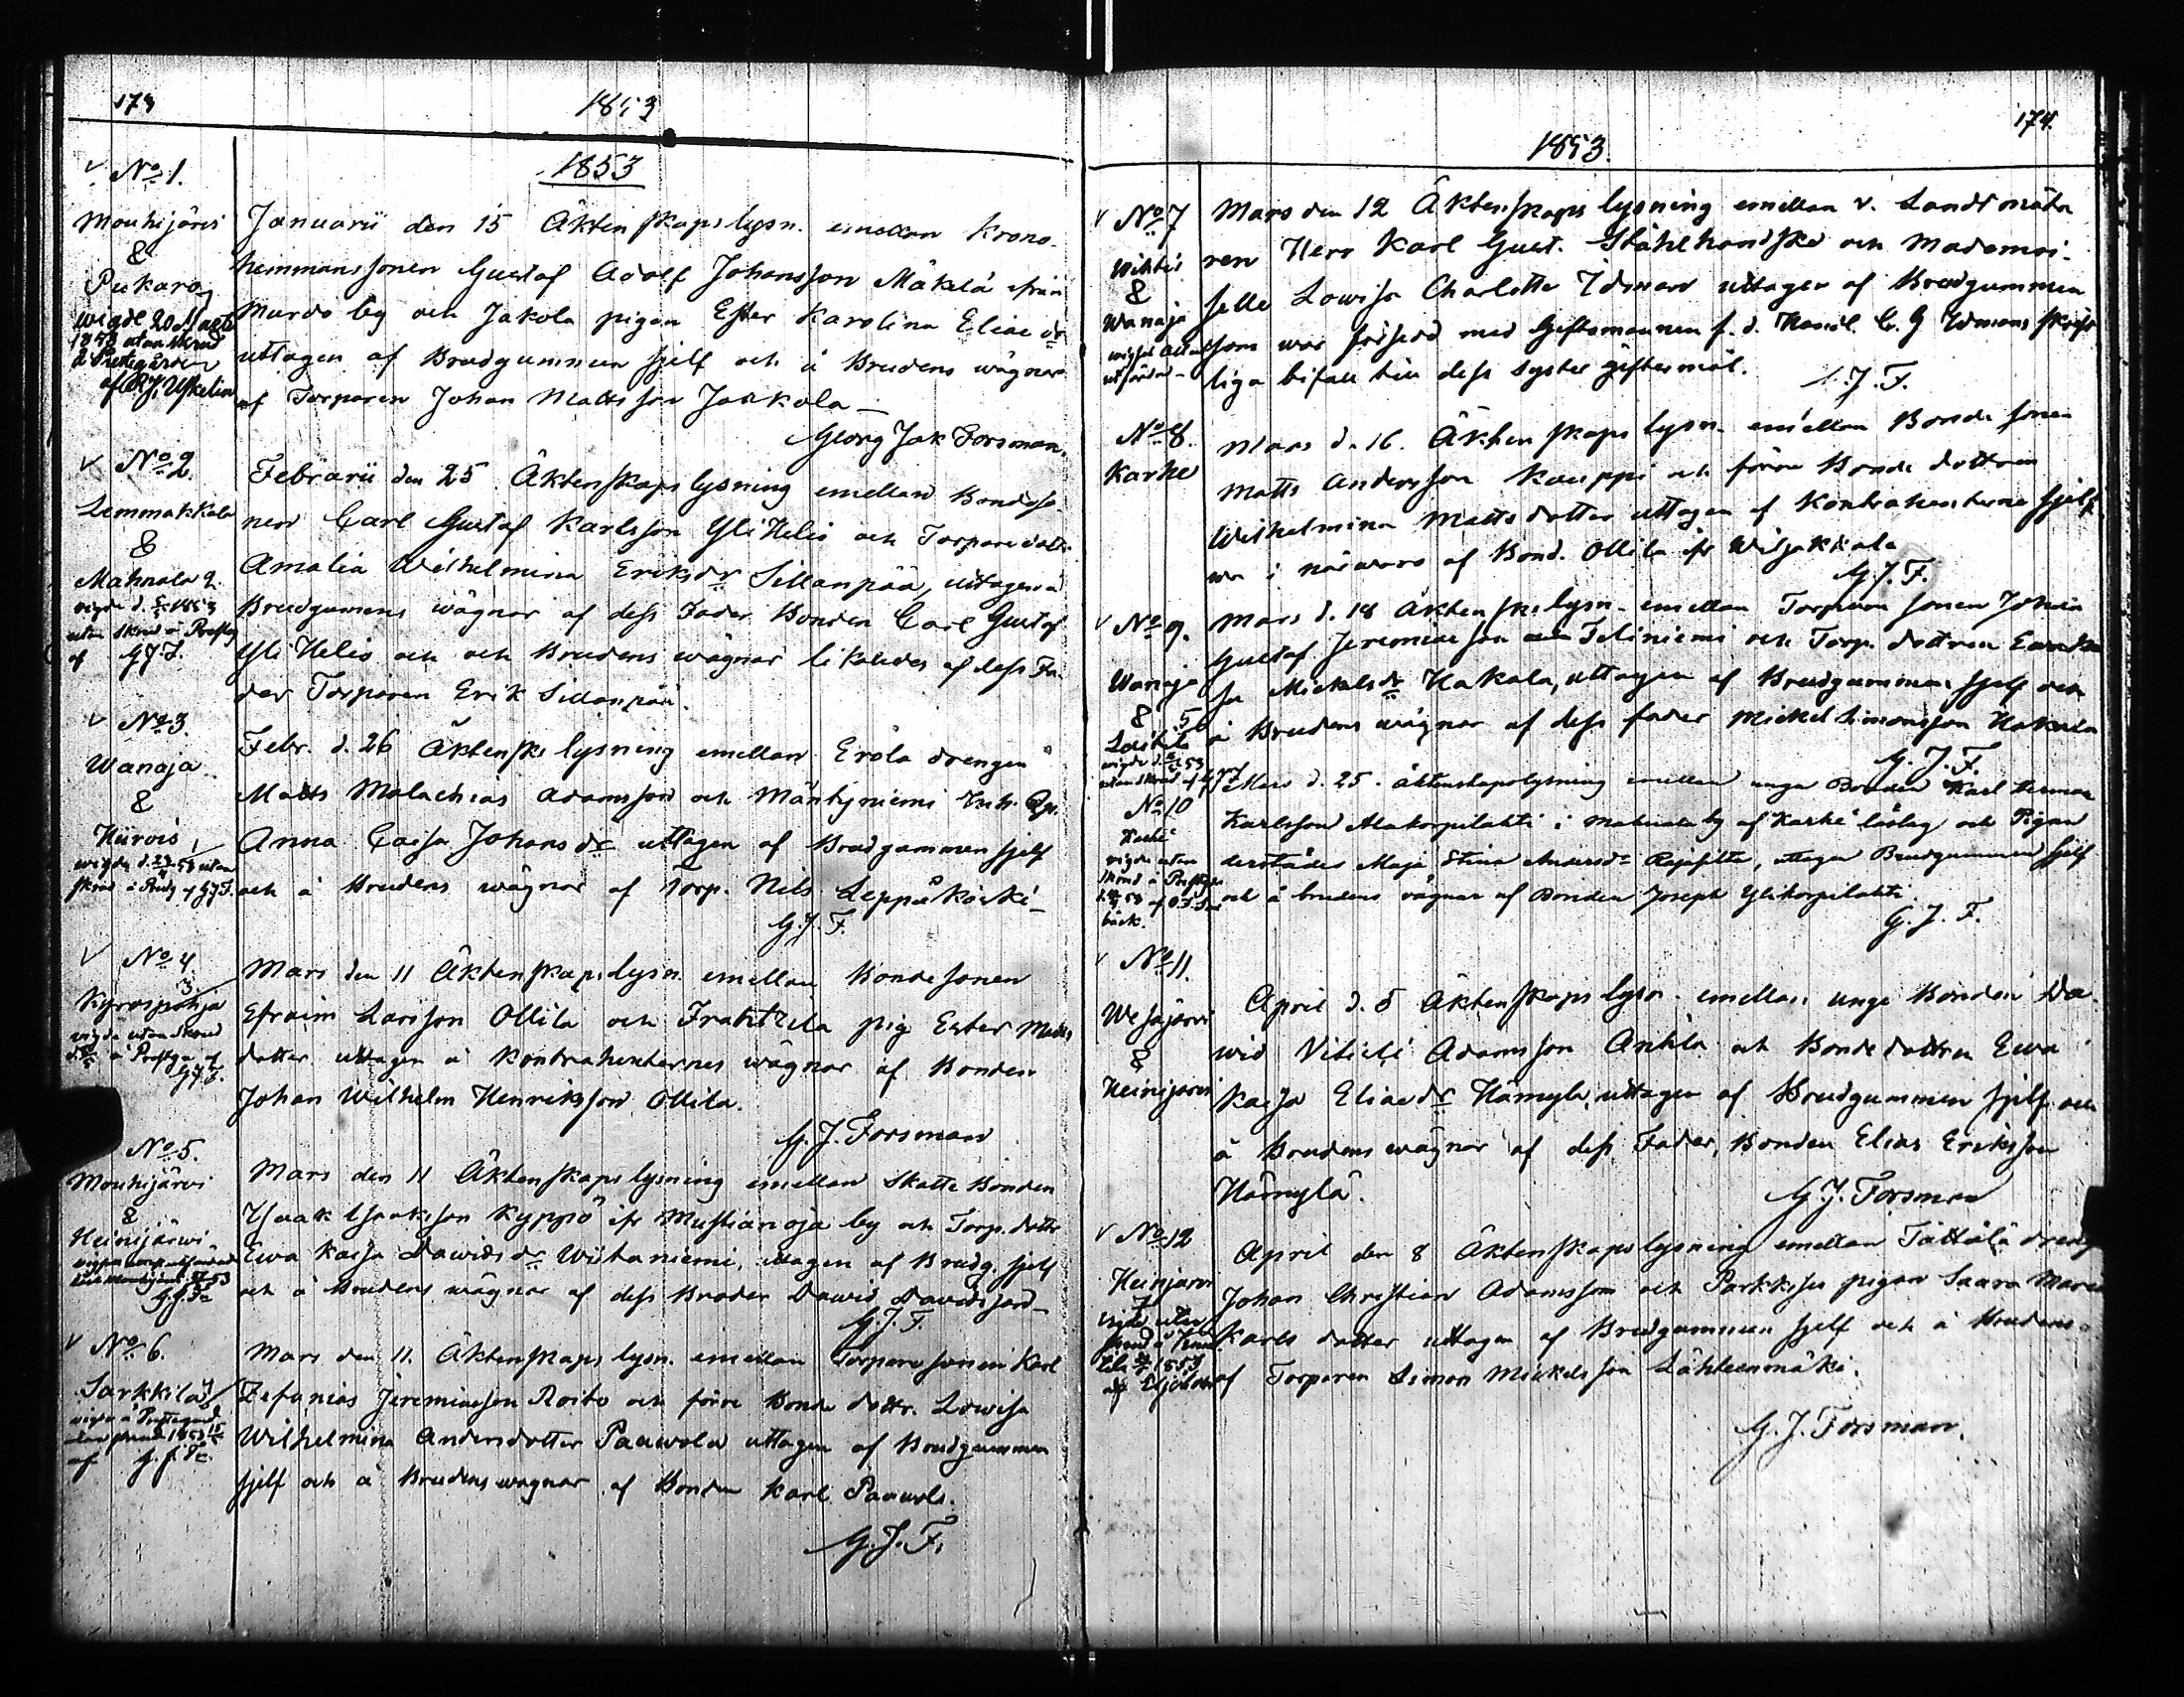 173
1853
1853
No 1.
Mouhijärvi
&
Pukara
wigde 20 Marts
1853 utan skrud
å Prestgården
Januarii den 15 Äktenskapslysn. emellan Krono-
hemmanssonen Gustaf Adolf Johansson Mäkelä från
Murdo by och Jakola pigan Ester Karolina Eliae dr
uttagen af Brudgummen sjelf och å Brudens wägnar
af Torparen Johan Mattsson Jaakola
Georg Jak Forsman.
No 2.
Lemmakkala
&
Mahnala 2.
utan skrud å Prestg
af G J F.
Februarii den 25 Äktenskapslysning emellan Bondeso-
nen Carl Gustaf Karlsson Yli Helis och Torparedottr
Amalia Wilhelmina Eriksdr Sillanpää, uttagen å
Brudgumens wägnar af dess Fader Bonden Carl Gustaf
Yli Helis och och Brudens wägnar likaledes af dess Fa-
der Torparen Erik Sillanpää.
No 3.
Wanaja
&
Hiirois
skrud å Prstg af GJF.
Febr. d. 26 Äktensks lysning emellan Erola drengen
Matts Malachias Adamsson och Mäntyniemi Inh. Qp.
Anna Caisa Johansdr uttagen af Brudgummen sjelf
och å Brudens wägnar af Torp. Nils Leppäkoski
G. J. F.
No 4.
Kyrospohja
wigde utan skrud
å Prestg af
GJF.
Mars den 11 Äktenskapslysn. emellan Bondesonen
Efraim Larsson Ollila och Frantzila pig Ester Matts
dotter uttagen å Kontrahenternes wägnar af Bonden
Johan Wilhelm Henriksson Ollila.
G. J. Forsman
No 5.
Mouhijärvi
&
Heinijärwi
G J F
Mars den 11 Äktenskapslysning emellan Skatte Bonden
Isaak Isaksson Kyppö ifr Mustianoja by och Torp. dottr
Ewa Kaisa Dawidsdr Wiitaniemi, uttagen af Brudg. sjelf
och å Brudens wägnar af dess Broder Dawid Dawidsson
G. J. F.
No 6.
Sarkkila
wigde å Prestegård
utan skrud 1853
af G. J. F.
Mars den 11. Äktenskapslysn. emellan Torparesonen Karl
Zefanias Jeremiasson Roito och förre Bonde dottr. Lowisa
Wilhelmina Andersdotter Paawola uttagen af Brudgummen
sjelf och å Brudens wägnar af Bonden Karl Paawola.
G. J. F.
174.
1853.
No 7
Wihtis
&
Wanaja
Mars den 12 Äktenskapslysning emellan v. Landtmäta
ren Herr Karl Gust. Stålhandske och Mademoi-
selle Lowisa Charlotta Idman uttagen af Brudgummen
som war försedd med Giftomannen f. d. Handl. C. G Idmans skrift
liga bifall till dess syster giftermål.
G. J. F.
No 8.
Karhe
Mars d. 16. Äktenskapslysn. emellan Bondesonen
Matts Andersson Kauppi och förra Bonde dottren
Wilhelmina Matts dotter uttagen af Kontrahenterne sjelf
wa i närwaro af Bond. Ollila ifr Wiljakkala
G. J. F.
No 9.
Wanaja
&
Mars d. 18 Äktensks lysn. emellan Torparesonen Johan
Gustaf Jeremiasson Teliniemi och Torp. dottren Ewa Ka
sa Mickelsdr Hakala, uttagen af Brudgumman sjelf och
å Brudens wägnar af dess fader Mickel Simonsson Hakala
G. J. F.
No 10
Karhe
wigde utan
skrud å Prestg
bäck.
Mars d. 25. äktenskapslysning emellan unge Bonden Karl Herman
Karlsson Alakorpilahti i Mahnala by af Karhe låslag och Pigan
derstädes Maja Stina Andersdr Rajasilta, uttagen Brudgummen sjelf
och å brudens vägnar af Bonden Joseph Ylikorpilahti
G. J. F.
No 11.
Wesajärvi
&
Heinijärvi
April d. 5 Äktenskapslysn. emellan unge Bonden Da-
wid Vitalé Adamsson Anhla och Bondedottren Ewa
Kaisa Eliaedr Hämylä, uttagen af Brudgummen sjelf och
å Brudens wägnar af dess Fader, Bonden Elias Eriksson
Hämylä.
G. J. Forsman
No 12
Heinijärvi
April den 8 Äktenskapslysning emellan Tättälä dreng
Johan Christian Adamsson och Parkkisu pigan Saara Maria
Karls dotter uttagen af Brudgummen sjelf och å Brudens
af Torparen Simon Mickelsson Lähteenmäki.
G. J. Forsman.